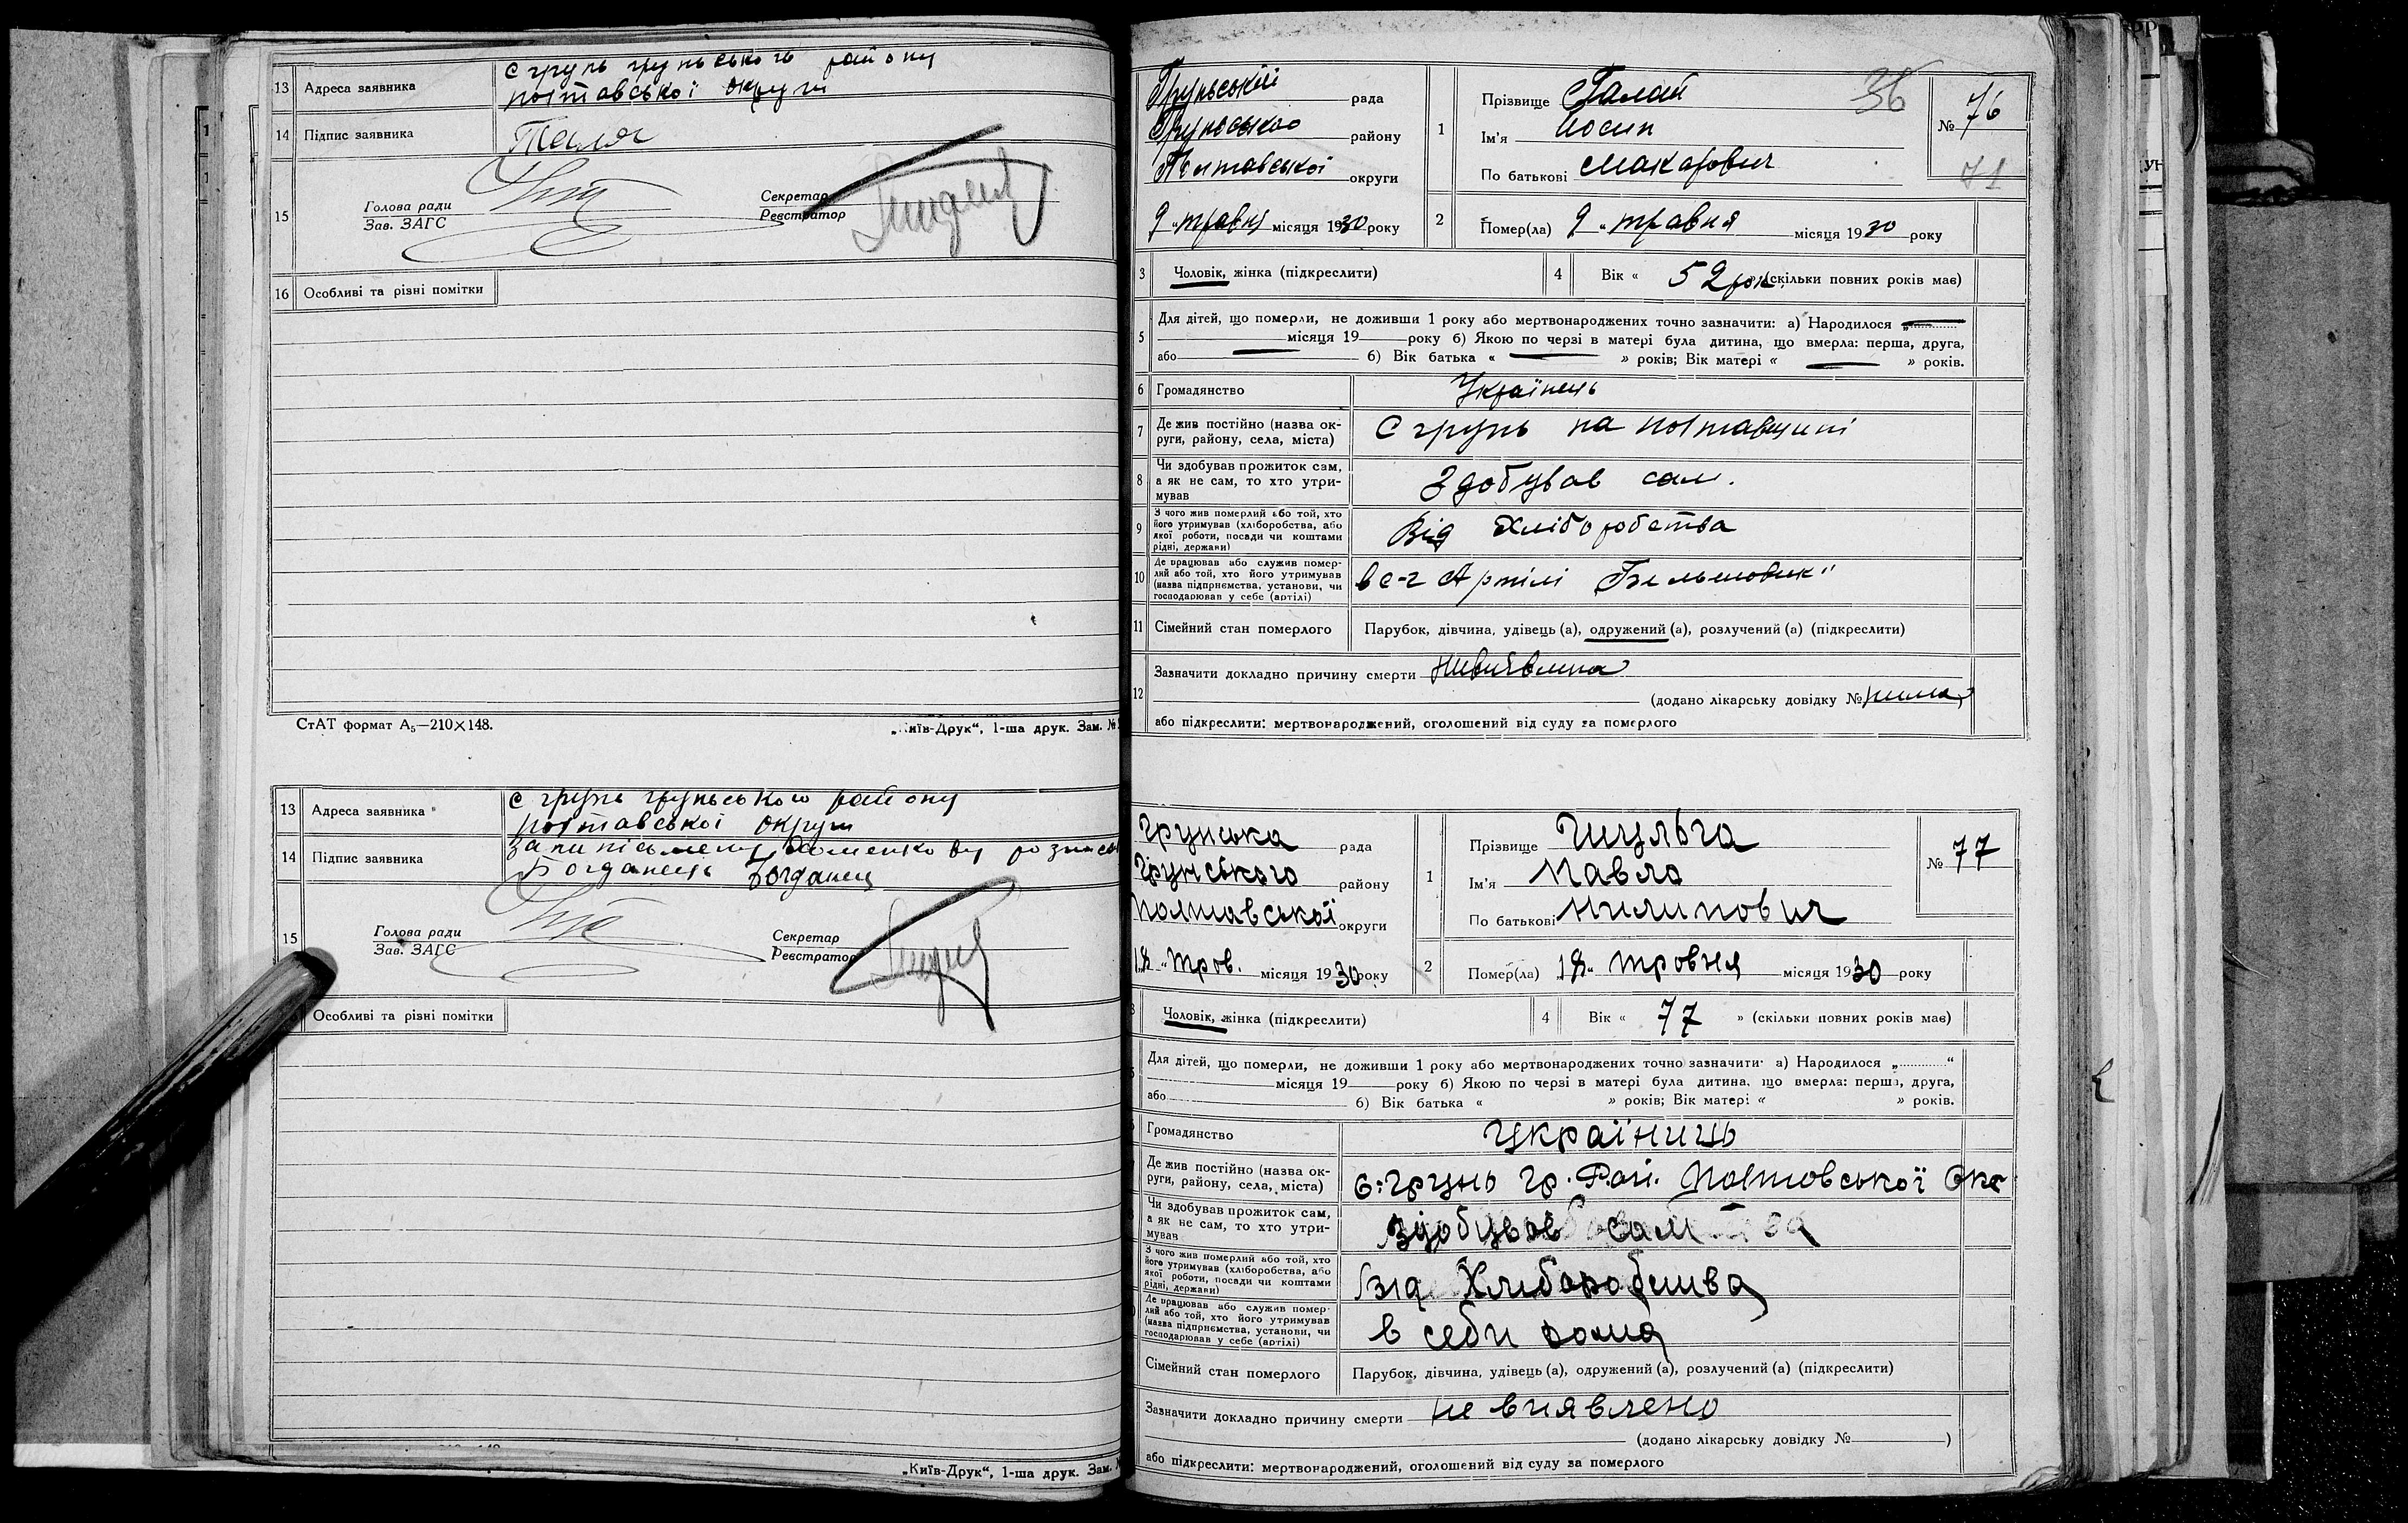 13 Адреса заявника
с грунь грунського району
полтавської округи
14 Підпис заявника
15 Голова ради
Зав. ЗАГС
Секретар
Реєстратор
16 Особливі та різні помітки
СтАТ формат А₅—210×148.
„Київ-Друк“, 1-ша друк. Зам. №
13 Адреса заявника
с грунь грунського району
полтавської округи
14 Підпис заявника
Богданець Богданець
15 Голова ради
Зав. ЗАГС
Секретар
Реєстратор
Особливі та різні помітки
„Київ-Друк“, 1-ша друк. Зам. №
рада
району
Полтавської округи
9 „ травня місяця 1930 року
36
1 Прізвище Галай
Ім'я Йосип
По батькові Макарович
№ 76
71
2 Помер(ла) 9 „ травня місяця 1930 року
3 Чоловік, жінка (підкреслити)
4 Вік « 52 рок. » (скільки повних років має)
5 Для дітей, що померли, не доживши 1 року або мертвонароджених точно зазначити: а) Народилося „
місяця 19 року б) Якою по черзі в матері була дитина, що вмерла: перша, друга,
або б) Вік батька « » років; Вік матері « » років.
6 Громадянство Українець
7 Де жив постійно (назва округи, району, села, міста)
С грунь на полтавщині
8 Чи здобував прожиток сам,
а як не сам, то хто утри-
мував
Здобував сам.
9 З чого жив померлий або той, хто
його утримував (хліборобства, або
якої роботи, посади чи коштами
рідні, держави)
Від Хліборобства
10 Де працював або служив помер-
лий або той, хто його утримував
(назва підприємства, установи, чи
господарював у себе (артілі)
в с-г Артілі „Більшовик"
11 Сімейний стан померлого Парубок, дівчина, удівець (а), одружений (а), розлучений (а) (підкреслити)
12 Зазначити докладно причину смерти
(додано лікарську довідку № нима)
або підкреслити: мертвонароджений, оголошений від суду за померлого
Грунська рада
Грунського району
Полтавської округи
18 „ трав. місяця 1930 року
1 Прізвище Шульга
Ім'я Павло
По батькові Пилипович
№ 77
2 Помер(ла) 18 „ тровня місяця 1930 року
Чоловік, жінка (підкреслити)
4 Вік « 77 » (скільки повних років має)
Для дітей, що померли, не доживши 1 року або мертвонароджених точно зазначити: а) Народилося „ “
місяця 19 року б) Якою по черзі в матері була дитина, що вмерла: перша, друга,
або б) Вік батька « » років; Вік матері « » років.
Громадянство україниць
Де жив постійно (назва ок-
руги, району, села, міста)
с: грунь гр. Рай. Полтовської Окр
Чи здобував прожиток сам,
а як не сам, то хто утри-
мував
здобував сам
З чого жив померлий або той, хто
його утримував (хліборобства, або
якої роботи, посади чи коштами
рідні, держави)
Від Хлиборобства
Де працював або служив помер-
лий або той, хто його утримував
(назва підприємства, установи, чи
господарював у себе (артілі)
в себи дома
Сімейний стан померлого Парубок, дівчина, удівець (а), одружений (а), розлучений (а) (підкреслити)
Зазначити докладно причину смерти не виявлено
(додано лікарську довідку № )
або підкреслити: мертвонароджений, оголошений від суду за померлого